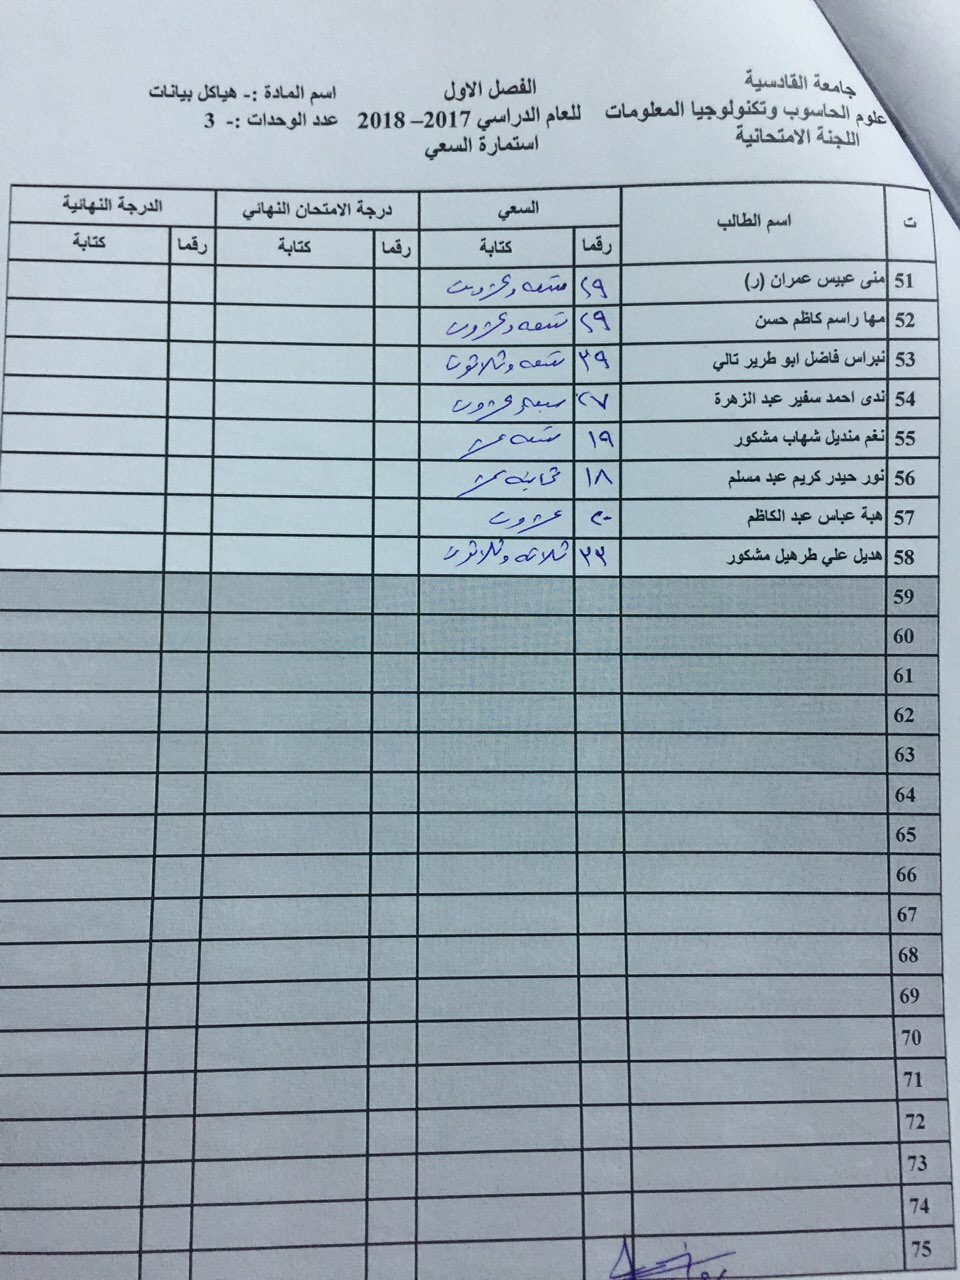 جامعة القادسية
علوم الحاسوب وتكنولوجيا المعلومات
اللجنة الامتحانية
الفصل الاول
للعام الدراسي 2017– 2018
استمارة السعي
اسم المادة :- هياكل بيانات
عدد الوحدات :- 3
ت اسم الطالب السعي درجة الامتحان النهائي الدرجة النهائية
رقما كتابة رقما كتابة رقما كتابة
51 منى عبيس عمران (ر) ٢٩ تسعه وعشرون
52 مها راسم كاظم حسن ٢٩ تسعه وعشرون
53 نبراس فاضل ابو طرير تالي ٣٩ تسعه وثلاثون
54 ندى احمد سفير عبد الزهرة ٢٧ سبعه وعشرون
55 نغم منديل شهاب مشكور ١٩ تسعه عشر
56 نور حيدر كريم عبد مسلم ١٨ ثمانيه عشر
57 هبة عباس عبد الكاظم ٢٠ عشرون
58 هديل علي طرهيل مشكور ٣٣ ثلاثه وثلاثون
59
60
61
62
63
64
65
66
67
68
69
70
71
72
73
74
75